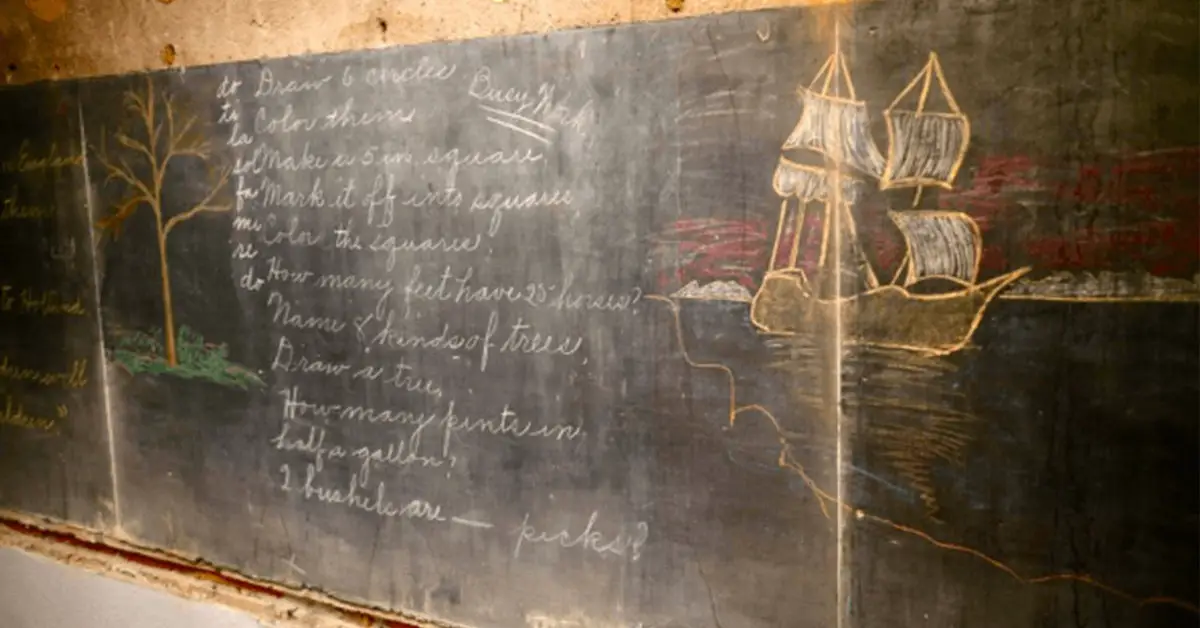 them
to Holland
do Draw 6 circles
Busy Work
ti Color them
la
sol Make a 5 in. square.
fa Mark it off into squares
mi Color the squares.
re
do How many feet have 25 horses?
Name 8 kinds of trees.
Draw a tree.
How many pints in
half a gallon?
2 bushels are — pecks?